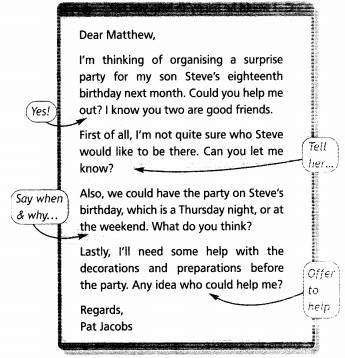 Dear Matthew,
I'm thinking of organising a surprise
party for my son Steve's eighteenth
birthday next month. Could you help me
out? I know you two are good friends.
Yes!
First of all, I'm not quite sure who Steve
would like to be there. Can you let me
know?
Tell
her...
Also, we could have the party on Steve's
birthday, which is a Thursday night, or at
the weekend. What do you think?
Say when
& why...
Lastly, I'll need some help with the
decorations and preparations before
the party. Any idea who could help me?
Offer
to
help
Regards,
Pat Jacobs